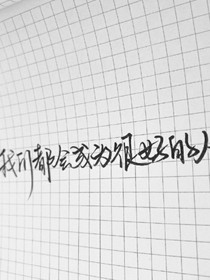 我们都会成为很好的人